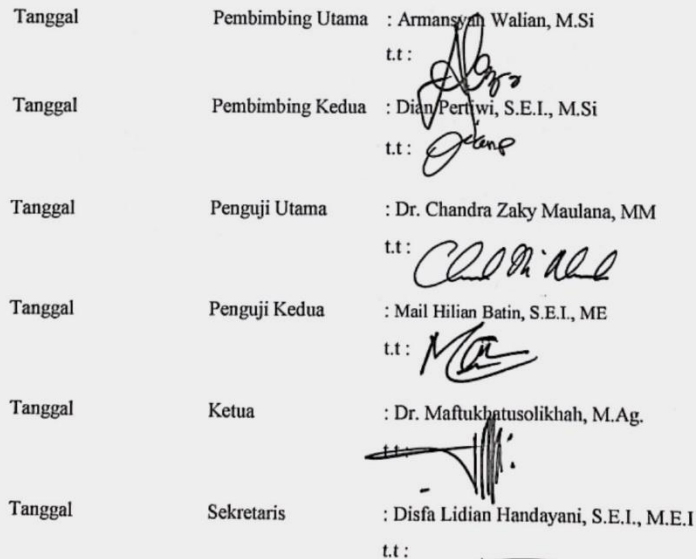 Tanggal Pembimbing Utama : Armansyah Walian, M.Si
t.t :
Tanggal Pembimbing Kedua : Dian Pertiwi, S.E.I., M.Si
t.t :
Tanggal Penguji Utama : Dr. Chandra Zaky Maulana, MM
t.t :
Tanggal Penguji Kedua : Mail Hilian Batin, S.E.I., ME
t.t :
Tanggal Ketua : Dr. Maftukhatusolikhah, M.Ag.
t.t :
Tanggal Sekretaris : Disfa Lidian Handayani, S.E.I., M.E.I
t.t :